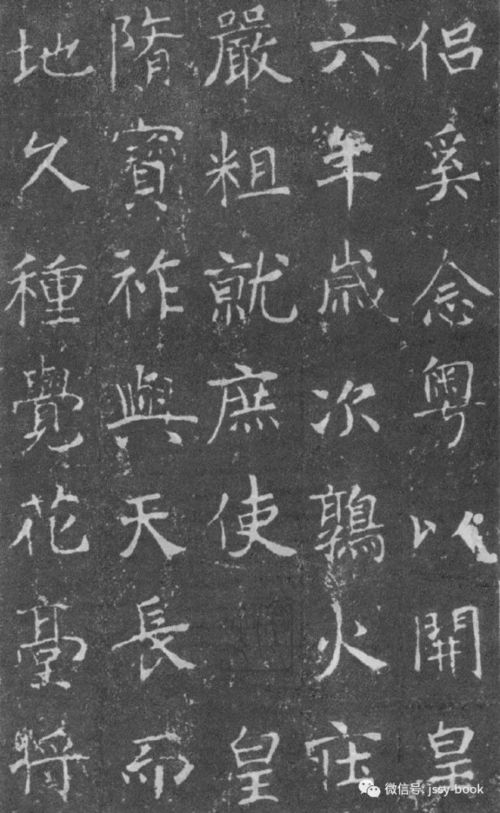 侣奚念粤以開皇
六年歲次鶉火庒
嚴粗就庶使 皇
隋寶祚與天長而
地久種覺花臺將
微信号: jssy-book